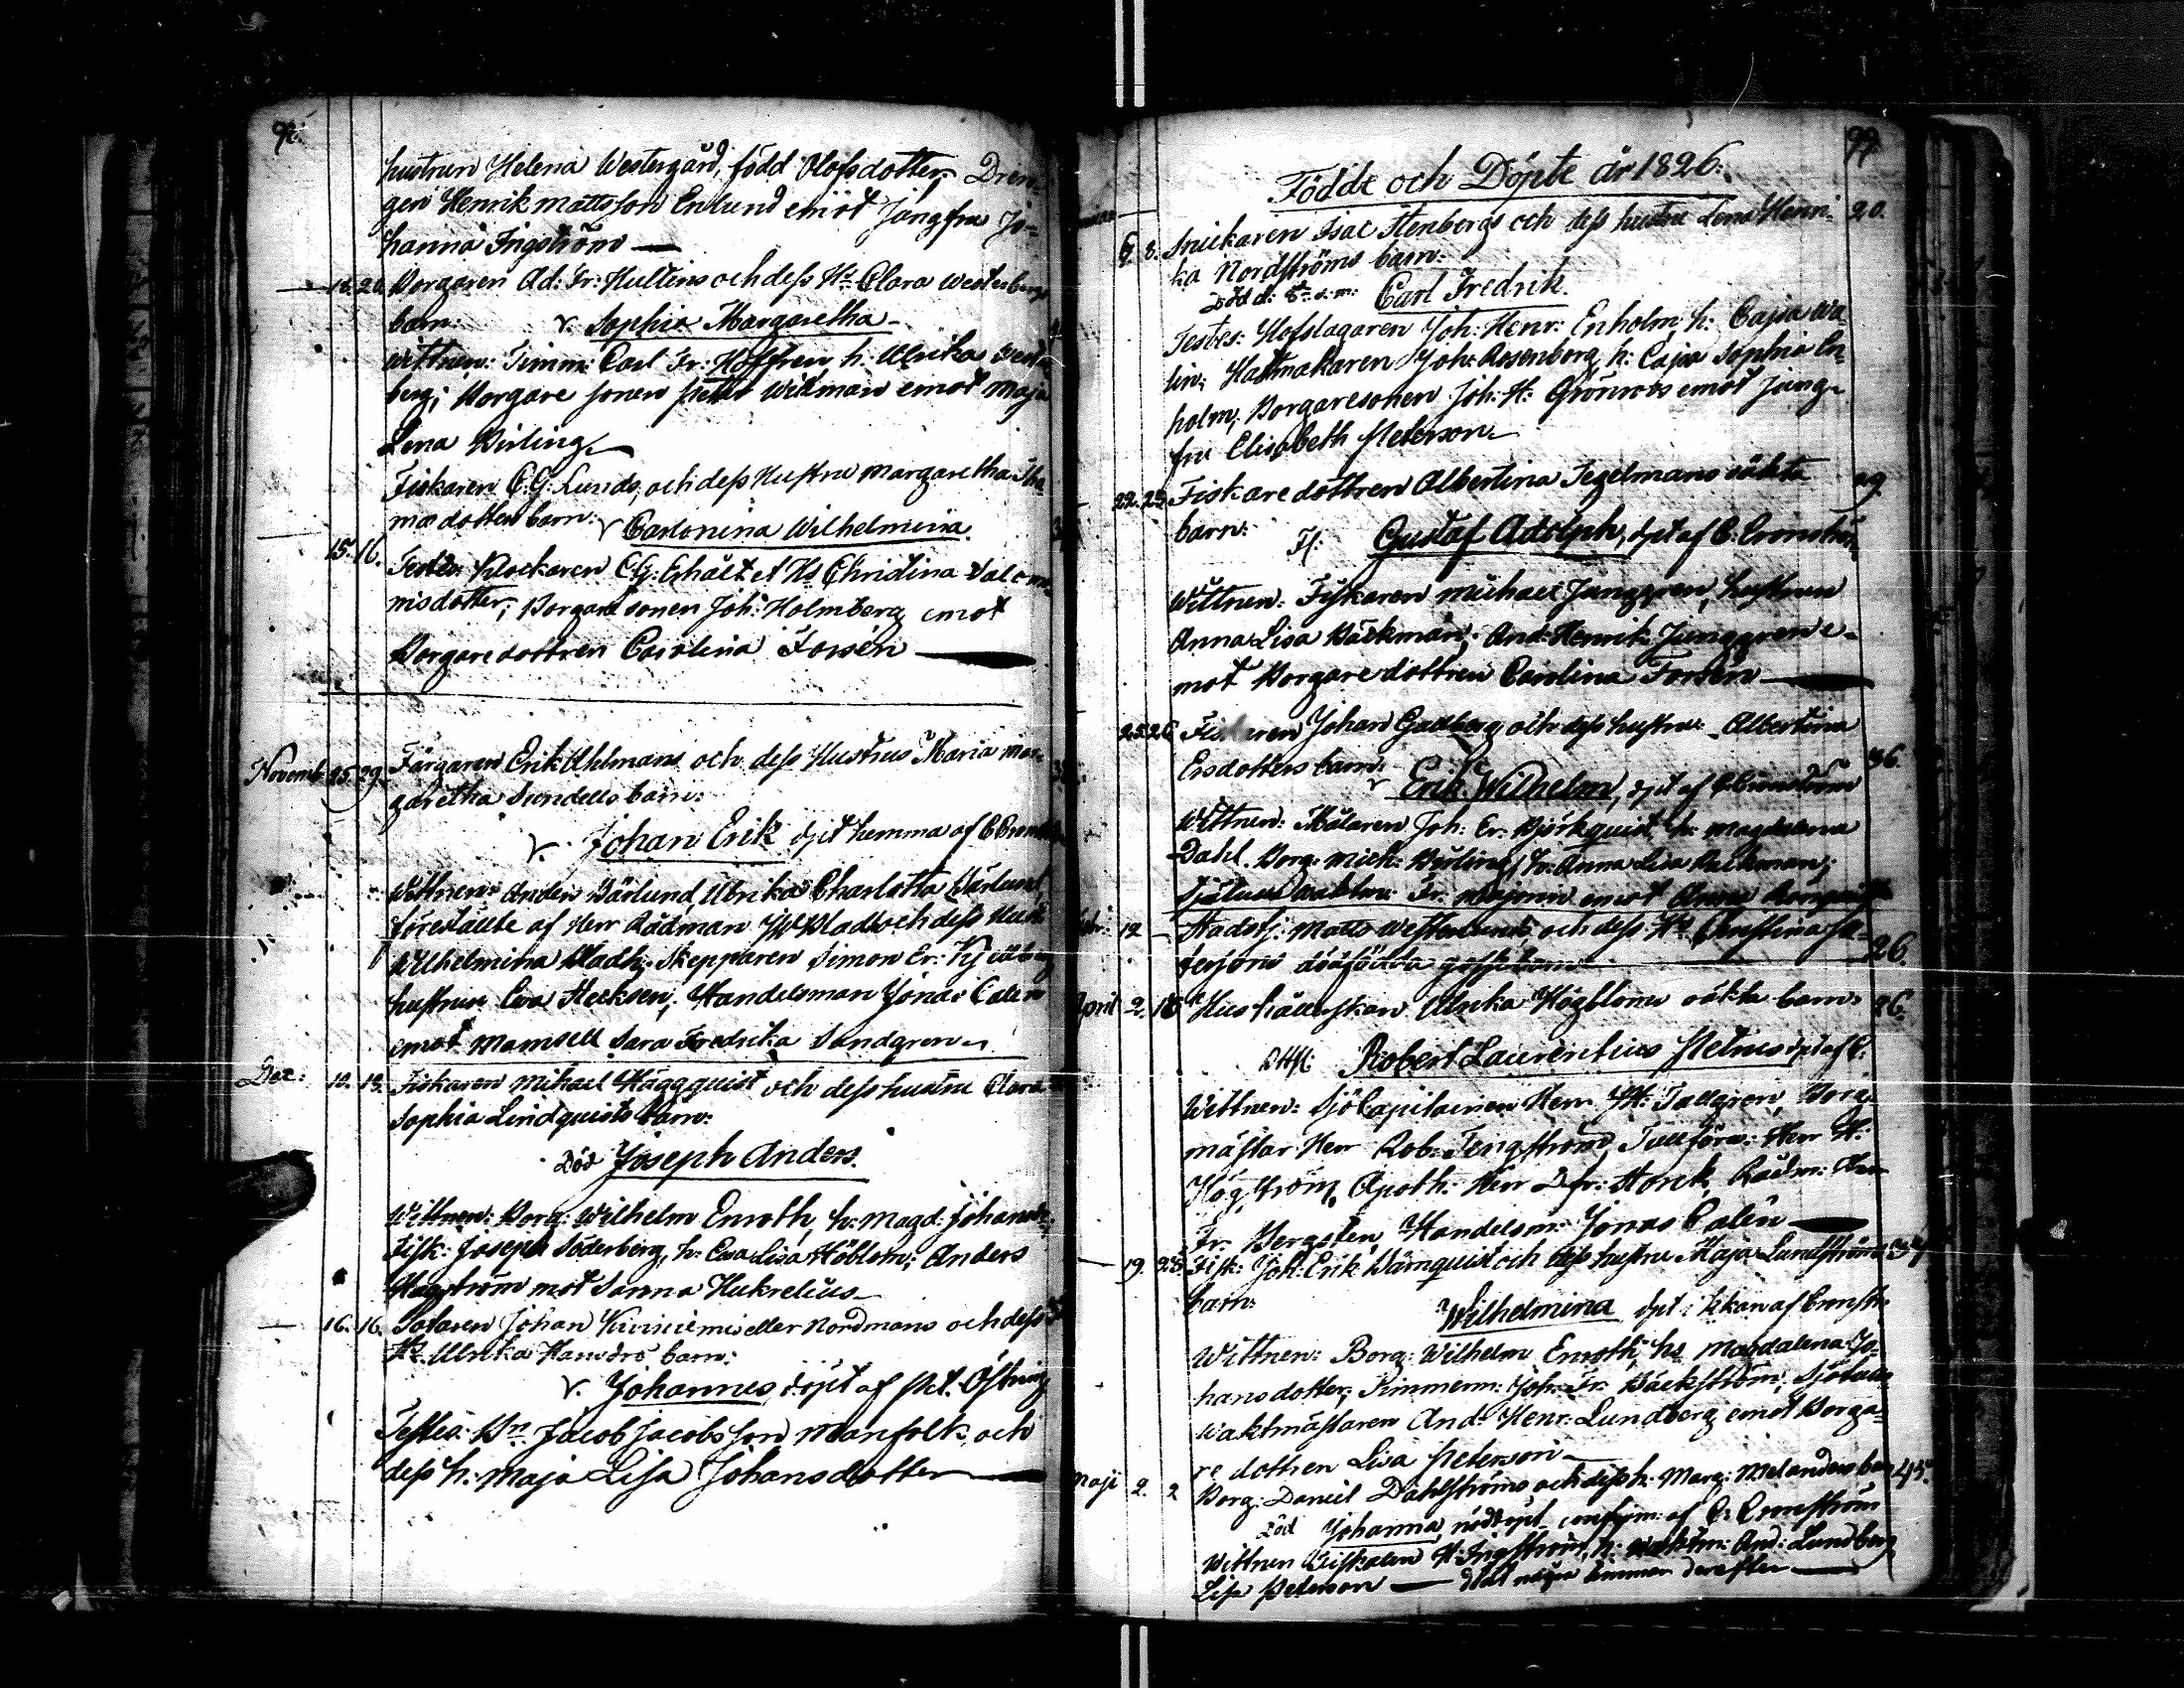 98.
hustrun Helena Westergård, född Olofsdotter; Dren-
gen Henrik Mattsson Enlund emot Jungfru Jo-
hanna Ingström —
18. 20. Borgaren Ad: Fr: Hultins och dess Hu Clara Westerbergs
barn: v. Sophia Margaretha
Wittnen: Timm: Carl Fr: Hoffren, h. Ulrika Wester-
berg; Borgare sonen Petter Wikman emot Maja
Lena Birling
Fiskaren C.G. Lunds, och dess Hustru Margaretha Tho-
masdotters barn: v Carlonina Wilhelmina
15. 16. Testes: Klockaren C.G. et Hu Christina Salomo-
nisdotter; Borgare sonen Joh: Holmberg emot
Borgaredottren Carolina Forsén —
Novemb. 25. 29. Färgaren Erik Uhlmans och dess Hustrus Maria Mar-
garetha Sundells barn:
v. Johan Erik döpt hemma af C.
Wittnen: Anders Wärlund, Ulrika Charlotta Wärlund
föreställte af Herr Rådman och dess Hust:
Wilhelmina Skepparen Simon Er:
hustrun Eva Hecksen; Handelsman Jonas Calen
emot Mamsell Sara Fredrika Sandgren
Dec: 10. 13. Fiskaren Mikael Häggquist och dess hustru Clara
Sophia Lindquists barn:
Död Joseph Anders.
Wittnen: Borg: Wilhelm Enroth, h: Magd: Johansd:
Fisk: Joseph Söderberg, h: Eva Lisa Anders
Hagström mot Sanna
16. 16. Johan eller Nordmans och dess
Hu Ulrika Hansdrs barn:
v. Johannes döpt af Pet. Östring
Testes: Bn Jacob Jacobsson Manfolk och
dess h: Maja Lisa Johansdotter —
99
Födde och Döpte år 1826.
6. 8. Snickaren Isac Stenbergs och dess hustru Lena Henri- 20.
ka Nordströms barn:
Död d: Carl Fredrik.
Testes: Hofslagaren Joh: Henr: Enholm, h: Cajsa Wa-
lin; Hattmakaren Joh: Rosenberg, h: Cajsa Sophia En-
holm; Borgaresonen Joh: H: Grönroos emot Jung-
fru Elisabeth Peterson
22. 25. Fiskaredottren Albertina Tegelmans oäkta 29
barn: Gustaf Adolph, döpt af C.
Wittnen: Fiskaren Michael Junggren, hustrun
Anna Lisa Bäckman; And: Henrik Junggren e-
mot Borgaredottren Carolina Forsén —
25. 26. Fiskaren Johan Gadberg och dess hustru Albertina
Ersdotters barn: 36
v Erik Wilhelm, döpt af C.
Wittnen: Målaren Joh: Er: Björkquist, h: Magdalena
Dahl. Borg: Mich: Birling, h: Anna Lisa Backman;
emot Anna
12 — Stadstj: Matts Westerlunds och dess Hu Christina
dödfödda gossebarn 26.
April 2. 16 Hushållerskan Ulrika Högbloms oäkta barn: 26.
Robert Laurentius Petrus döpt af C.
Wittnen: Sjö Capitainen Herr J.H: Tallgren, Borg-
mästar Herr Rob: Tengström, Tullförv: Herr H:
Högström, Apoth: Herr Dfr: Rådm: Herr
Fr. Bergsten, Handelsm: Jonas Calén —
19. 23. Fisk: Joh: Erik Wärnquist och dess hustru Maja Lundströms 37
barn: Wilhelmina döpt i kkan af
Wittnen: Borg: Wilhelm Enroth, hu Magdalena Jo-
hansdotter; Timmerm: Joh: Fr: Bäckström; Sjötulls
waktmästaren And: Henr: Lundberg emot Borga-
re dottren Lisa Peterson —
Maji 2. 2 Borg: Daniel Dahlströms och dess h: Marg: Melanders barn 45.
Död Johanna, nöddöpt confirm: af C.
Wittnen H: Ingström, h: And: Lundberg
Lisa Peterson — Död några timmar derefter —